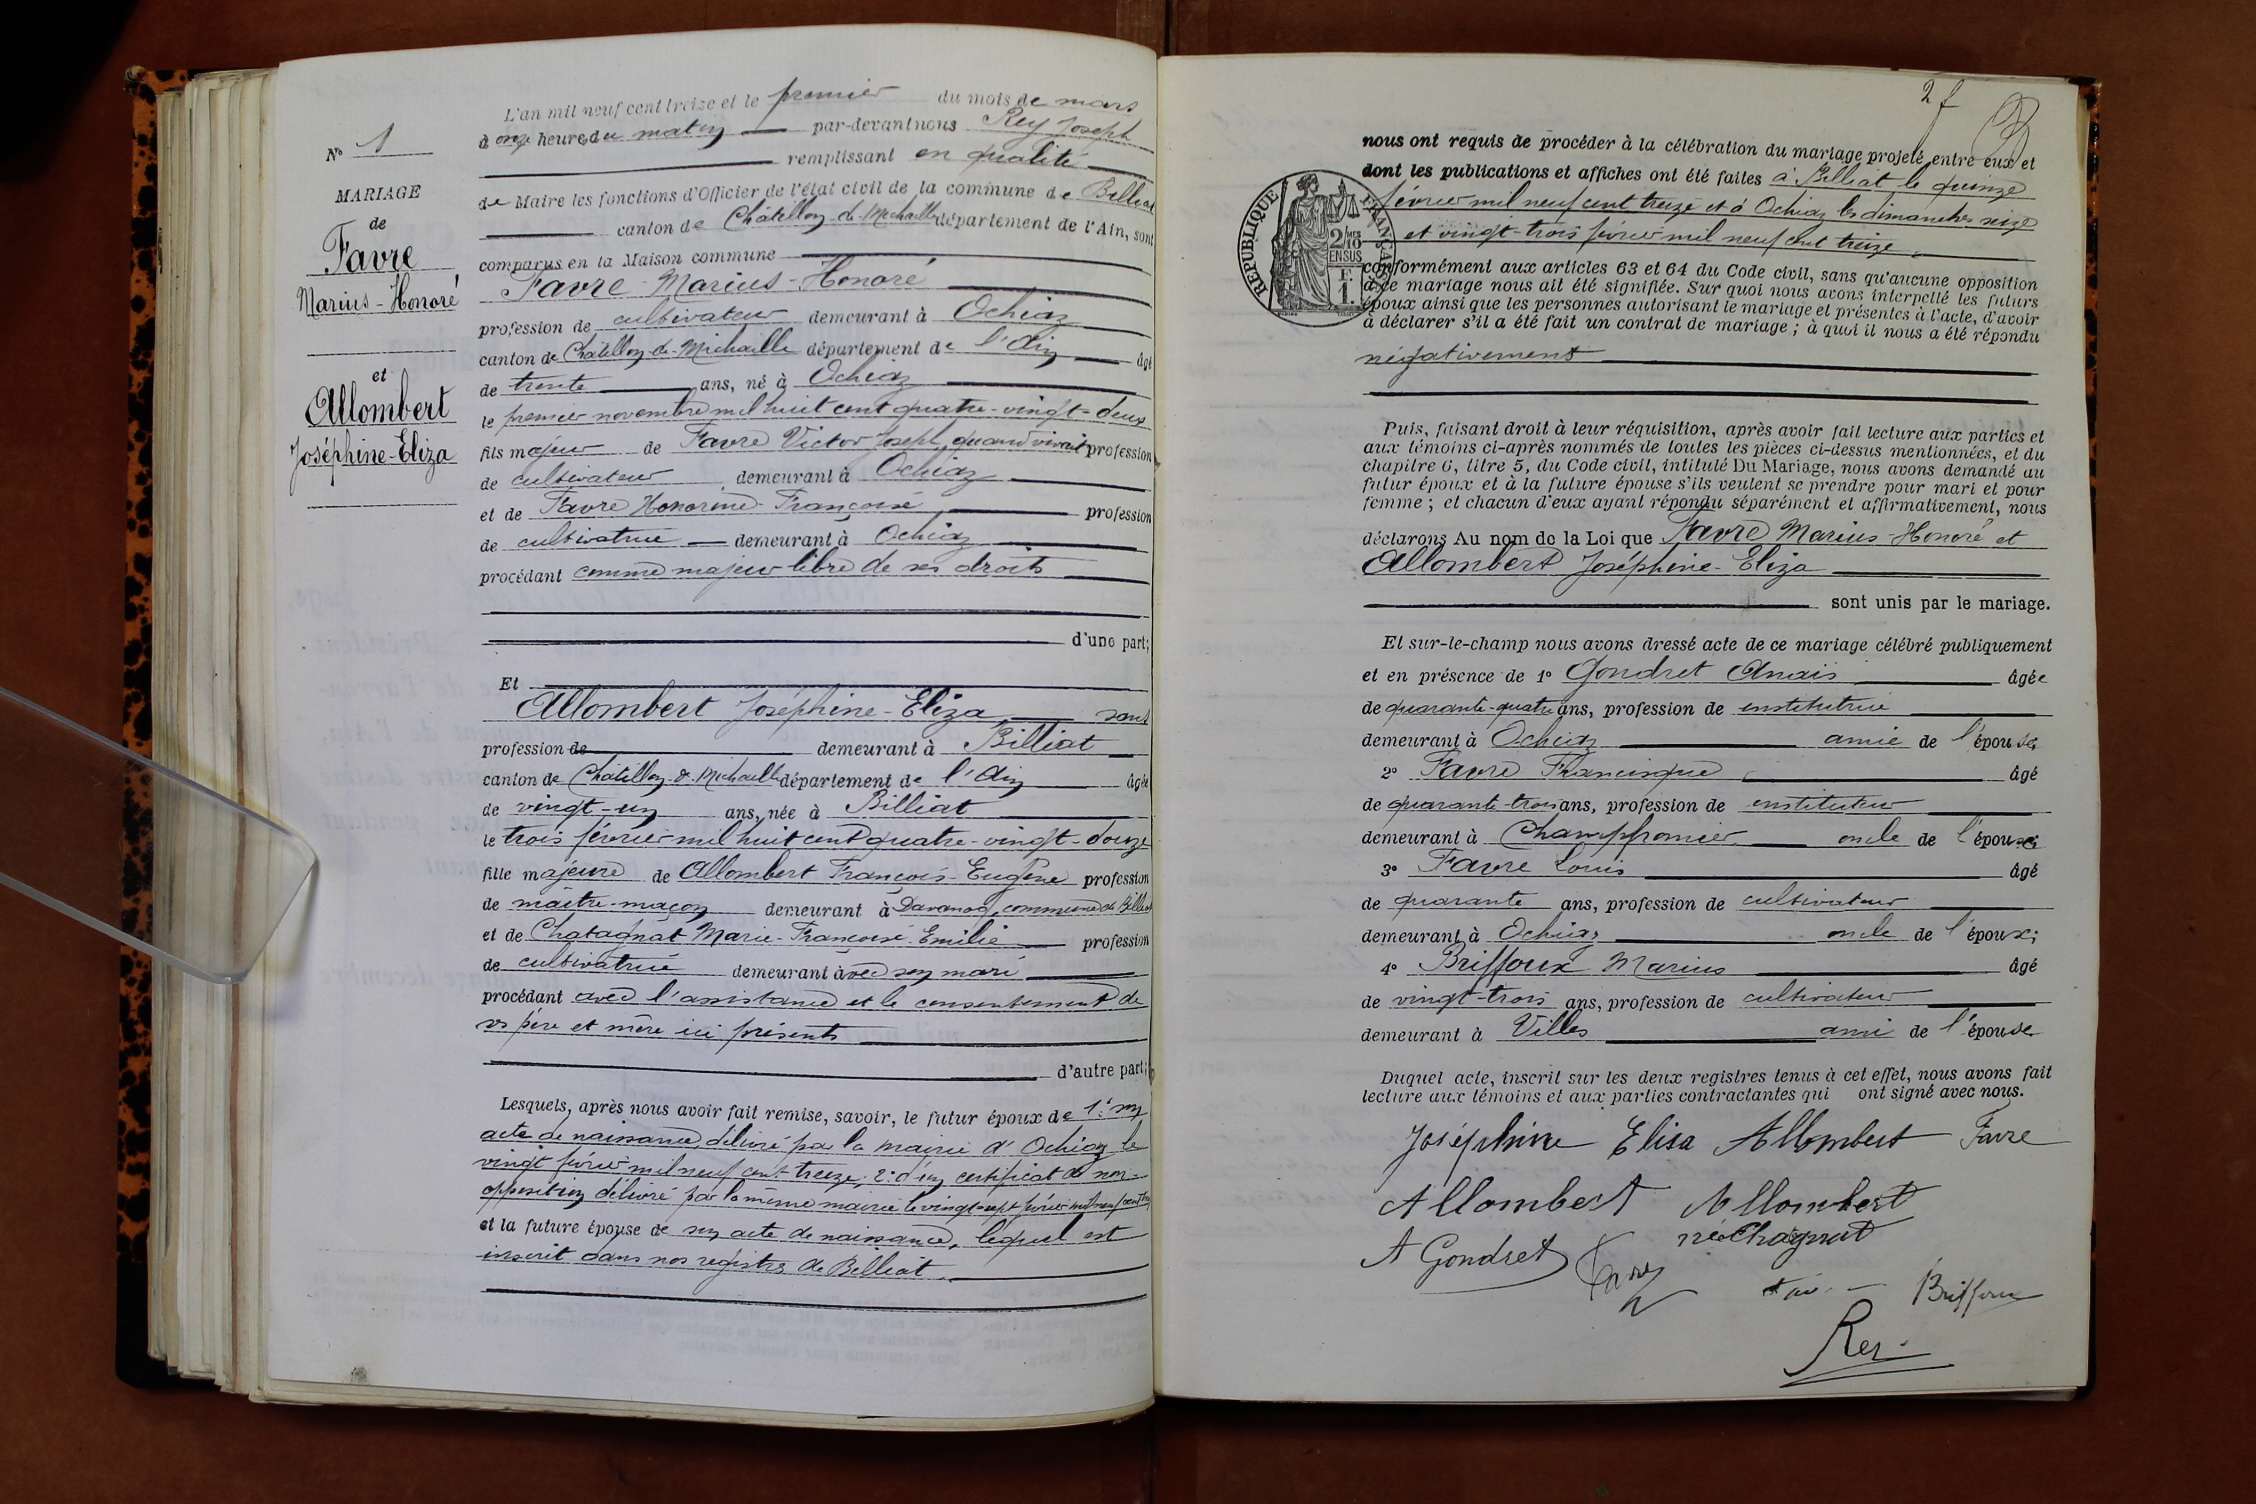 N° 1
MARIAGE
de
Favre
Marius-Honoré
et
Allombert
Joséphine-Eliza
L'an mil neuf cent treize et le premier du mois de mars
à onze heure du matin par-devant nous Rey Joseph
remplissant en qualité
de Maire les fonctions d'Officier de l'état civil de la commune de Billiat
canton de Châtillon-de-Michaille département de l'Ain, sont
comparus en la Maison commune
Favre Marius-Honoré
profession de cultivateur demeurant à Ochiaz
canton de Châtillon-de-Michaille département de l'Ain âgé
de trente ans, né à Ochiaz
le premier novembre mil huit cent quatre-vingt-deux
fils majeur de Favre Victor Joseph, quand vivait profession
de cultivateur demeurant à Ochiaz
et de Favre Honorine Françoise profession
de cultivatrice demeurant à Ochiaz
procédant comme majeur libre de ses droits
d'une part;
Et
Allombert Joséphine-Eliza sans
profession de demeurant à Billiat
canton de Châtillon-de-Michaille département de l'Ain âgée
de vingt-un ans, née à Billiat
le trois février mil huit cent quatre-vingt-douze
fille majeure de Allombert François-Eugène profession
de maître-maçon demeurant à Davanod, commune de Billiat
et de Chatagnat Marie-Françoise-Emilie profession
de cultivatrice demeurant avec son mari
procédant avec l'assistance et le consentement de
ses père et mère ici présents
d'autre part;
Lesquels, après nous avoir fait remise, savoir, le futur époux de 1° son
acte de naissance, délivré par la mairie d'Ochiaz le
vingt février mil neuf cent treize. 2° d'un certificat de non-
opposition délivré par la même mairie le vingt-sept février mil neuf cent
et la future épouse de son acte de naissance, lequel est
inscrit dans nos registres de Billiat.
2 f
nous ont requis de procéder à la célébration du mariage projeté entre eux et
dont les publications et affiches ont été faites à Billiat le quinze
février mil neuf cent treize et à Ochiaz les dimanches seize
et vingt-trois février mil neuf cent treize
REPUBLIQUE FRANÇAISE
2/10 MES
EN SUS
F
1.
conformément aux articles 63 et 64 du Code civil, sans qu'aucune opposition
à ce mariage nous ait été signifiée. Sur quoi nous avons interpellé les futurs
époux ainsi que les personnes autorisant le mariage et présentes à l'acte, d'avoir
à déclarer s'il a été fait un contrat de mariage; à quoi il nous a été répondu
négativement
Puis, faisant droit à leur réquisition, après avoir fait lecture aux parties et
aux témoins ci-après nommés de toutes les pièces ci-dessus mentionnées, et du
chapitre 6, titre 5, du Code civil, intitulé Du Mariage, nous avons demandé au
futur époux et à la future épouse s'ils veulent se prendre pour mari et pour
femme; et chacun d'eux ayant répondu séparément et affirmativement, nous
déclarons Au nom de la Loi que Favre Marius-Honoré et
Allombert Joséphine-Eliza
sont unis par le mariage.
Et sur-le-champ nous avons dressé acte de ce mariage célébré publiquement
et en présence de 1° Gondret Anaïs âgée
de quarante-quatre ans, profession de institutrice
demeurant à Ochiaz amie de l'épouse;
2° Favre Francisque âgé
de quarante-trois ans, profession de instituteur
demeurant à Champfromier oncle de l'époux;
3° Favre Louis âgé
de quarante ans, profession de cultivateur
demeurant à Ochiaz oncle de l'époux;
4° Briffoux Marius âgé
de vingt-trois ans, profession de cultivateur
demeurant à Villes ami de l'épouse
Duquel acte, inscrit sur les deux registres tenus à cet effet, nous avons fait
lecture aux témoins et aux parties contractantes qui ont signé avec nous.
Joséphine Elisa Allombert Favre
Allombert Allombert
née Chagnat
A Gondret Favre Briffoux
Rey